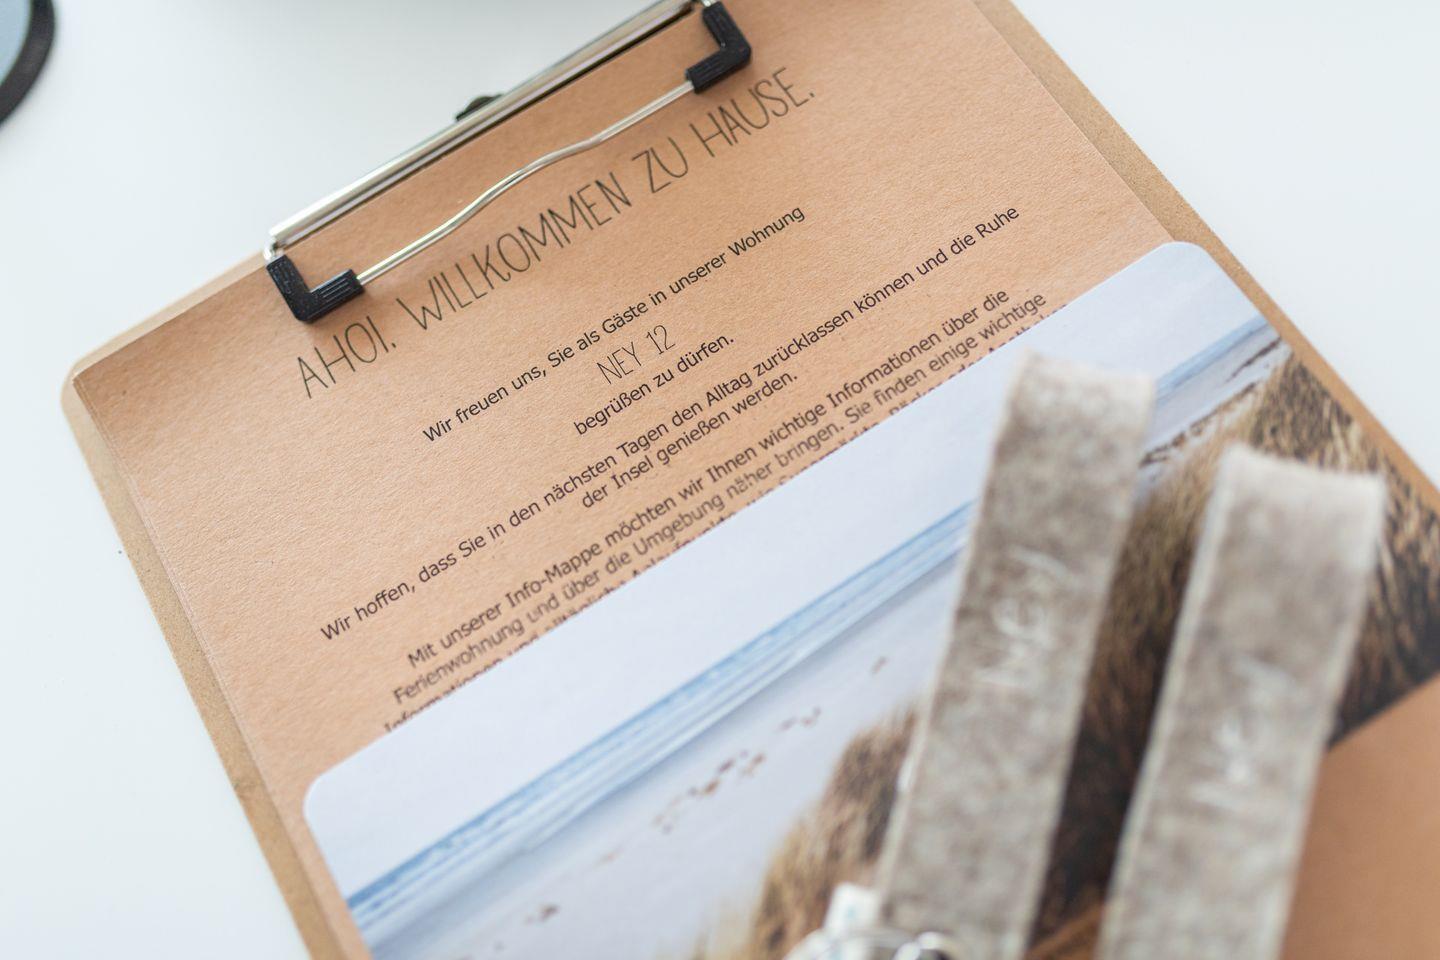 AHOI. WILLKOMMEN ZU HAUSE.
Wir freuen uns, Sie als Gäste in unserer Wohnung
NEY 12
begrüßen zu dürfen.
Wir hoffen, dass Sie in den nächsten Tagen den Alltag zurücklassen können und die Ruhe
der Insel genießen werden.
Mit unserer Info-Mappe möchten wir Ihnen wichtige Informationen über die
Ferienwohnung und über die Umgebung näher bringen. Sie finden einige wichtige
Informationen und
Ney
Ney